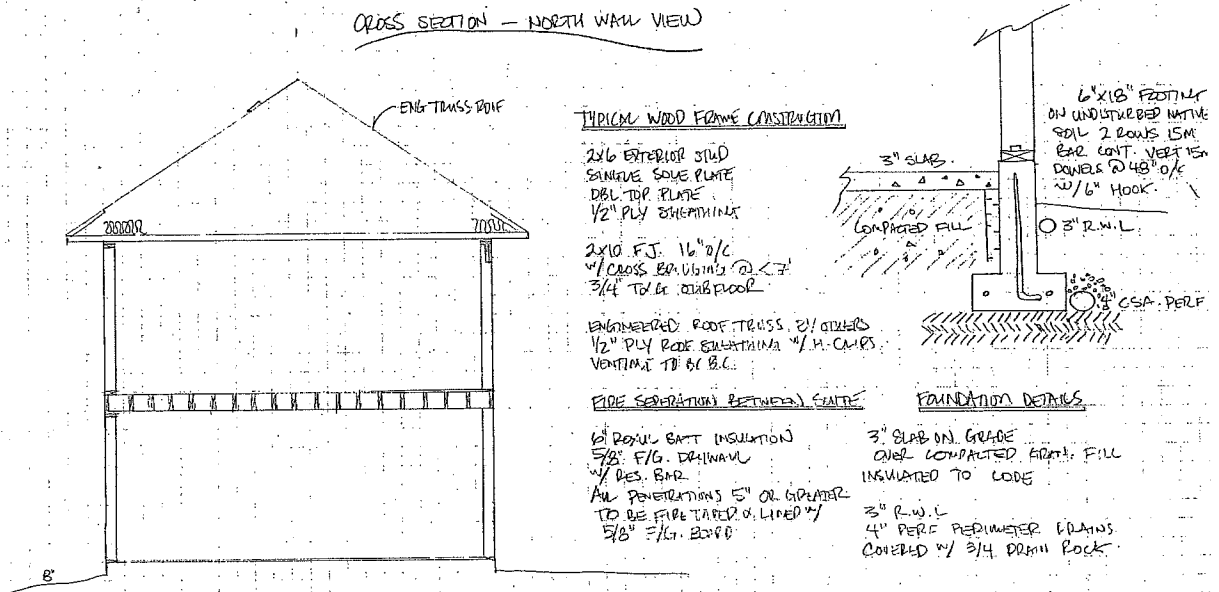 CROSS SECTION — NORTH WALL VIEW
ENG TRUSS ROOF
TYPICAL WOOD FRAME CONSTRUCTION
2x6 EXTERIOR STUD
SINGLE SOLE PLATE
DBL TOP PLATE
1/2" PLY SHEATHING
2x10 F.J. 16" o/c
w/ CROSS BRIDGING @ < 7'
3/4" T&G SUBFLOOR
ENGINEERED ROOF TRUSS BY OTHERS
1/2" PLY ROOF SHEATHING w/ H-CLIPS
VENTING TO BC B.C.
FIRE SEPERATION BETWEEN SUITE
6" ROXUL BATT INSULATION
5/8" F/G. DRYWALL
w/ RES. BAR
ALL PENETRATIONS 5" OR GREATER
TO BE FIRE TAPED & LINED w/
5/8" F/G. BOARD
8"
3" SLAB
COMPACTED FILL
6"x18" FOOTING
ON UNDISTURBED NATIVE
SOIL 2 ROWS 15M
BAR CONT. VERT 15M
DOWELS @ 48" o/c
w/ 6" HOOK
3" R.W.L
4" CSA. PERF
FOUNDATION DETAILS
3" SLAB ON GRADE
OVER COMPACTED FILL
INSULATED TO CODE
3" R.W.L
4" PERF PERIMETER DRAINS
COVERED w/ 3/4 DRAIN ROCK